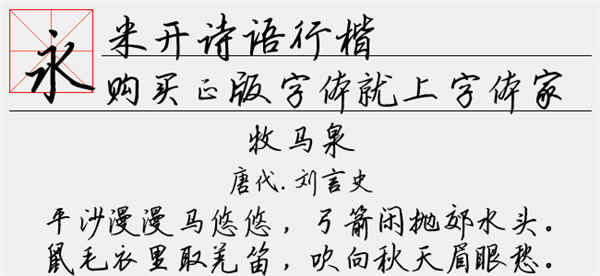 永
米开诗语行楷
购买正版字体就上字体家
牧马泉
唐代.刘言史
平沙漫漫马悠悠，弓箭闲抛郊水头。
鼠毛衣里取羌笛，吹向秋天眉眼愁。